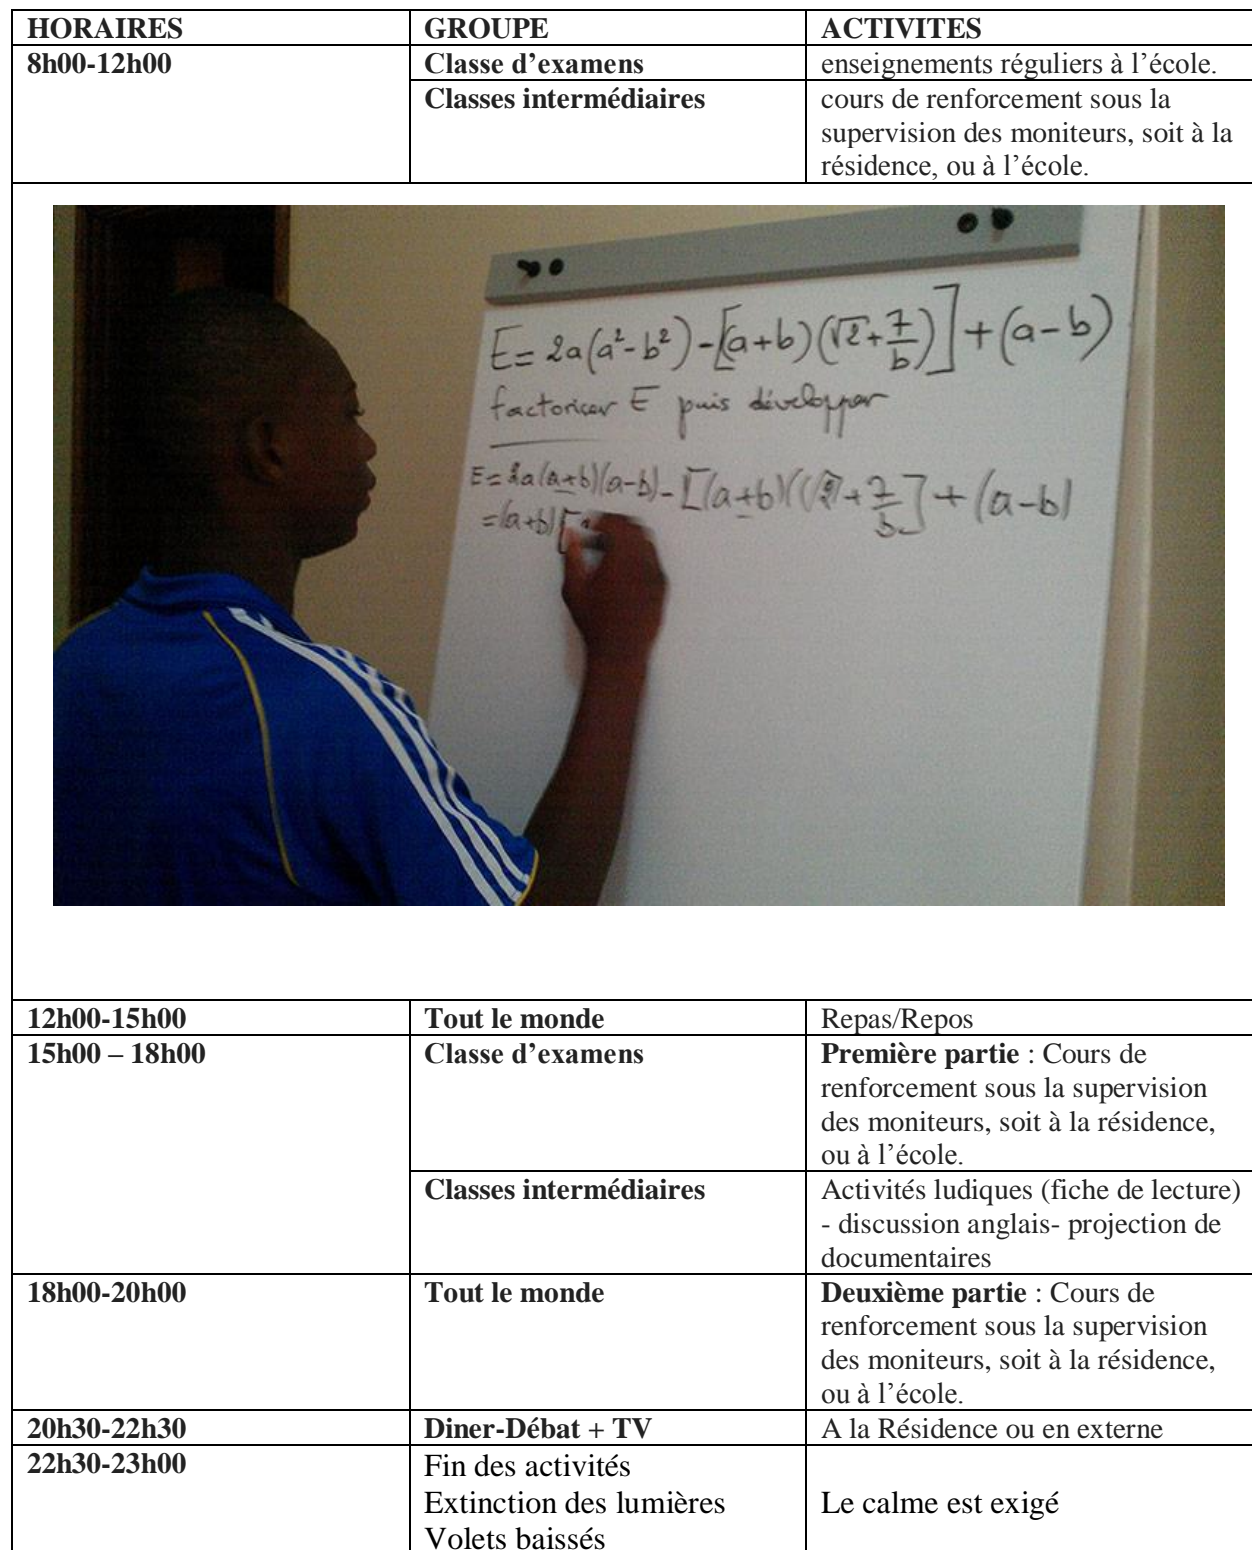 HORAIRES GROUPE ACTIVITES
8h00-12h00 Classe d’examens enseignements réguliers à l’école.
Classes intermédiaires cours de renforcement sous la
supervision des moniteurs, soit à la
résidence, ou à l’école.
E = 2a(a²-b²)-[(a+b)(√2+7/b)]+(a-b)
factoriser E puis développer
E = 2a(a+b)(a-b)-[(a+b)((√2)+7/b]+(a-b)
=(a+b)[
12h00-15h00 Tout le monde Repas/Repos
15h00 – 18h00 Classe d’examens Première partie : Cours de
renforcement sous la supervision
des moniteurs, soit à la résidence,
ou à l’école.
Classes intermédiaires Activités ludiques (fiche de lecture)
- discussion anglais- projection de
documentaires
18h00-20h00 Tout le monde Deuxième partie : Cours de
renforcement sous la supervision
des moniteurs, soit à la résidence,
ou à l’école.
20h30-22h30 Diner-Débat + TV A la Résidence ou en externe
22h30-23h00 Fin des activités
Extinction des lumières Le calme est exigé
Volets baissés